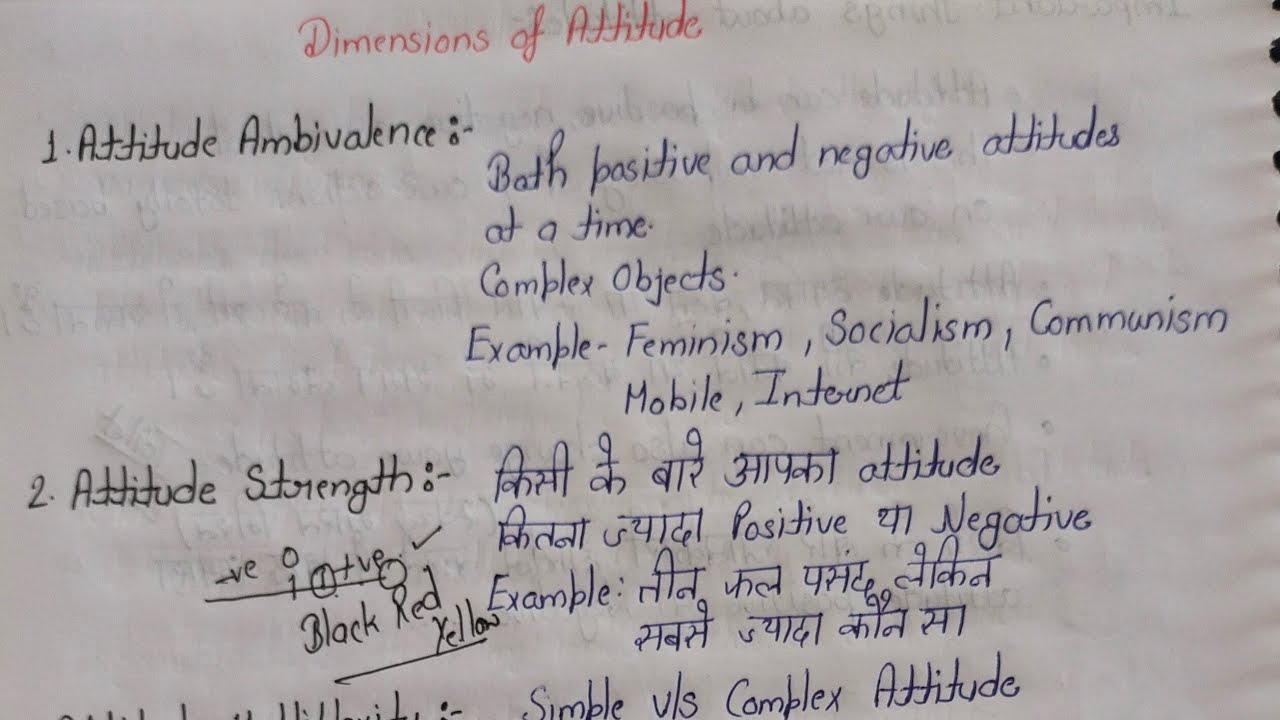 Dimensions of Attitude
1. Attitude Ambivalence :-
Both positive and negative attitudes
at a time.
Complex Objects.
Example- Feminism, Socialism, Communism
Mobile, Internet
2. Attitude Strength :- किसी के बारे आपका attitude
कितना ज्यादा Positive या Negative
-ve 0 +ve ✓
Black Red Yellow
Example: तीन फल पसंद, लेकिन
सबसे ज्यादा कौन सा
Simple v/s Complex Attitude